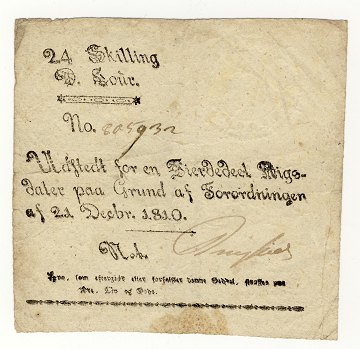 24 Skilling
D. Cour.
No. 805932
Udstedt for en Fierdedeel Rigs-
daler paa Grund af Forordningen
af 21 Decbr. 1810.
Not.
Hvo, som eftergiør eller forfalsker denne Seddel, straffes paa
Ære, Liv og Gods.